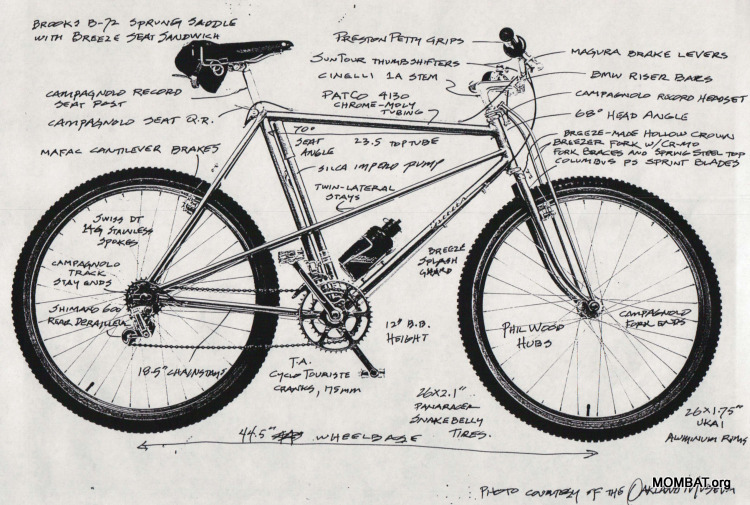 BROOKS B-72 SPRUNG SADDLE
WITH BREEZE SEAT SANDWICH
PRESTON PETTY GRIPS
SUNTOUR THUMBSHIFTERS
CINELLI 1A STEM
MAGURA BRAKE LEVERS
BMW RISER BARS
CAMPAGNOLO RECORD
SEAT POST
PATCO 4130
CHROME-MOLY
TUBING
CAMPAGNOLO RECORD HEADSET
CAMPAGNOLO SEAT Q.R.
68° HEAD ANGLE
70°
SEAT
ANGLE
23.5 TOPTUBE
BREEZE-MADE HOLLOW CROWN
BREEZER FORK W/CR-MO
FORK BRACES AND SPRING STEEL TOP
COLUMBUS PS SPRINT BLADES
MAFAC CANTILEVER BRAKES
SILCA IMPERO PUMP
TWIN-LATERAL
STAYS
Breezer
SWISS DT
STAINLESS
SPOKES
BREEZE
SPLASH
GUARD
CAMPAGNOLO
TRACK
STAY ENDS
SHIMANO 600
REAR DERAILLEUR
12" B.B.
HEIGHT
PHIL WOOD
HUBS
CAMPAGNOLO
FORK ENDS
18.5" CHAINSTAYS
T.A.
CYCLOTOURISTE
CRANKS, 175MM
26X2.1"
PANARACER
SNAKEBELLY
TIRES.
26X1.75"
UKAI
ALUMINUM RIMS
44.5" WHEELBASE
PHOTO COURTESY OF THE OAKLAND MUSEUM
MOMBAT.org